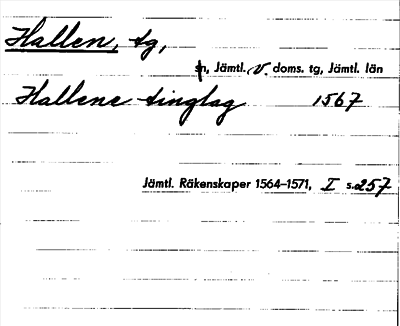 Hallen, tg,
sn, Jämtl. v. doms. tg, Jämtl. län
Hallene tinglag 1567
Jämtl. Räkenskaper 1564–1571, I s. 257